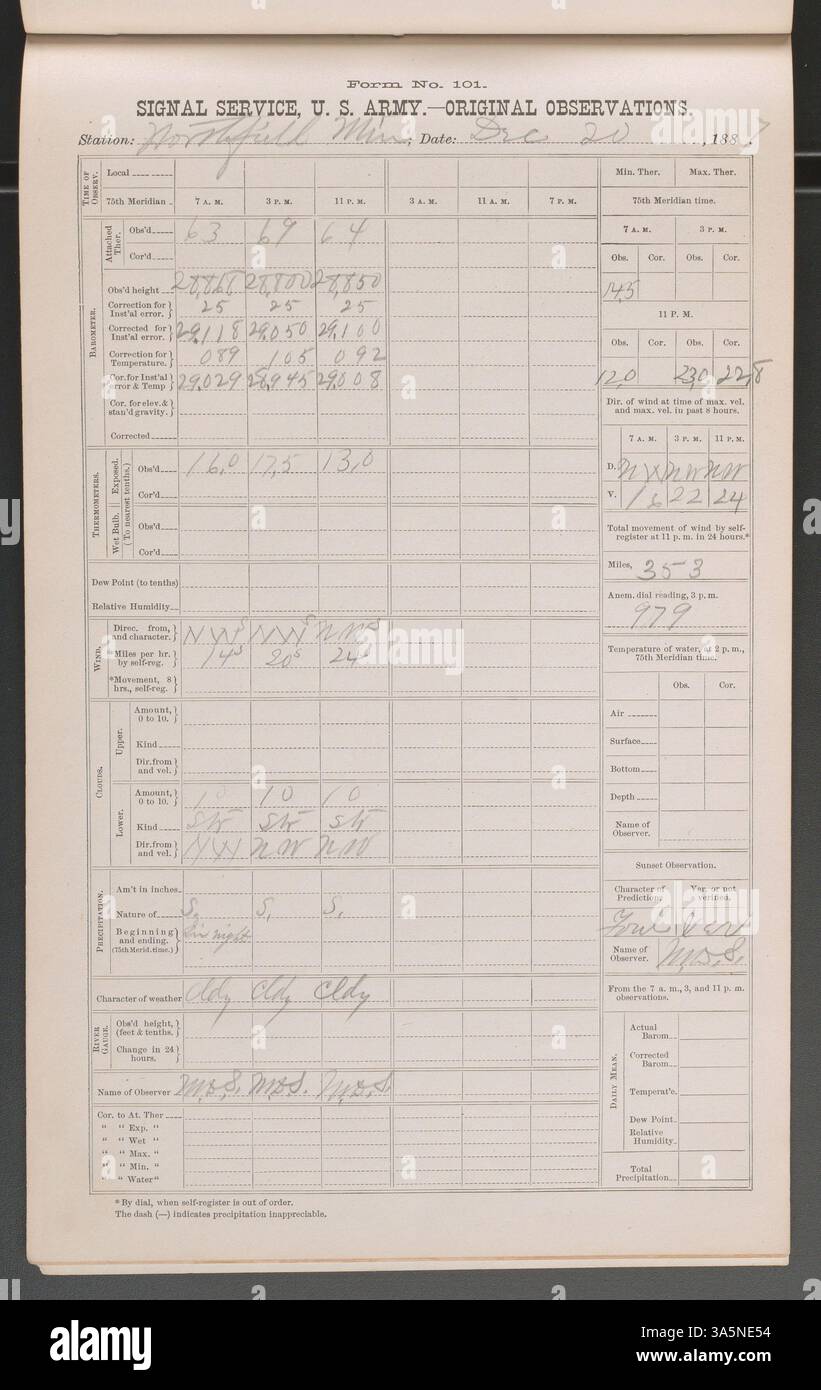 Form No. 101.
SIGNAL SERVICE, U. S. ARMY.—ORIGINAL OBSERVATIONS.
Station: Northfield Minn; Date: Dec 20, 1887.
TIME OF OBSERV.
Local
75th Meridian 7 A. M. 3 P. M. 11 P. M. 3 A. M. 11 A. M. 7 P. M.
BAROMETER.
Attached Ther.
Obs'd 63 69 64
Cor'd
Obs'd height 28,868 28,800 28,850
Correction for Inst'al error. 25 25 25
Corrected for Inst'al error. 29.118 29.050 29.100
Correction for Temperature. 089 105 092
Cor. for Inst'al error & Temp 29.029 28.945 29.008
Cor. for elev. & stan'd gravity.
Corrected
THERMOMETERS.
Exposed. (To nearest tenths.)
Obs'd 16,0 17,5 13,0
Cor'd
Wet Bulb.
Obs'd
Cor'd
Dew Point (to tenths)
Relative Humidity
WIND.
Direc. from, and character. NW S NW S NW S
*Miles per hr. by self-reg. 14 S 20 S 24 S
*Movement, 8 hrs., self-reg.
CLOUDS.
Upper.
Amount, 0 to 10.
Kind
Dir. from and vel.
Lower.
Amount, 0 to 10. 10 10 10
Kind Str Str Str
Dir. from and vel. NW NW NW
PRECIPITATION.
Am't in inches
Nature of S. S. S.
Beginning and ending. (75th Merid. time.) night
Character of weather Cldy Cldy Cldy
RIVER GAUGE.
Obs'd height, (feet & tenths.)
Change in 24 hours.
Name of Observer M.D.S. M.D.S. M.D.S.
Cor. to At. Ther
" " Exp. "
" " Wet "
" " Max. "
" " Min. "
" " Water "
* By dial, when self-register is out of order.
The dash (—) indicates precipitation inappreciable.
Min. Ther. Max. Ther.
75th Meridian time.
7 A. M. 3 P. M.
Obs. Cor. Obs. Cor.
14,5
11 P. M.
Obs. Cor. Obs. Cor.
12,0 23,0 22,8
Dir. of wind at time of max. vel. and max. vel. in past 8 hours.
7 A. M. 3 P. M. 11 P. M.
D. NW NW NW
V. 16 22 24
Total movement of wind by self-register at 11 p. m. in 24 hours.*
Miles, 353
Anem. dial reading, 3 p. m.
979
Temperature of water, at 2 p. m., 75th Meridian time.
Obs. Cor.
Air
Surface
Bottom
Depth
Name of Observer.
Sunset Observation.
Character of Prediction. Ver. or not verified.
Fair Ver
Name of Observer. M.D.S.
From the 7 a. m., 3, and 11 p. m. observations.
DAILY MEAN.
Actual Barom.
Corrected Barom.
Temperat'e.
Dew Point.
Relative Humidity.
Total Precipitation.
alamy
Image ID: 3A5NE54
www.alamy.com